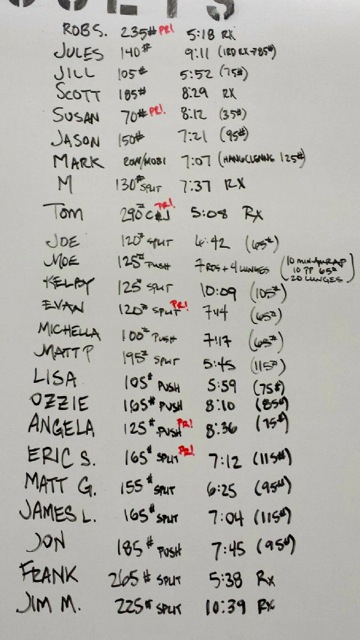 ROB S. 235# PR! 5:18 RX
JULES 140# 9:11 (1RD RX + 85#)
JILL 105# 5:52 (75#)
SCOTT 185# 8:29 RX
SUSAN 70# PR! 8:12 (35#)
JASON 150# 7:21 (95#)
MARK ROW/MOBI 7:07 (HANG CLEANING 125#)
M 130# SPLIT 7:37 RX
TOM 290# C&J PR! 5:08 RX
JOE 120# SPLIT 6:42 (65#)
MOE 125# PUSH 7 RDS + 4 LUNGES (10 MIN AMRAP
10 PP 65#
20 LUNGES)
KELBY 125# SPLIT 10:09 (105#)
EVAN 120# SPLIT PR! 7:44 (65#)
MICHELLA 100# PUSH 7:17 (65#)
MATT P 195# SPLIT 5:45 (115#)
LISA 105# PUSH 5:59 (75#)
OZZIE 165# PUSH 8:10 (85#)
ANGELA 125# PUSH PR! 8:36 (75#)
ERIC S. 165# SPLIT PR! 7:12 (115#)
MATT G. 155# SPLIT 6:25 (95#)
JAMES L. 165# SPLIT 7:04 (115#)
JON 185# PUSH 7:45 (95#)
FRANK 265# SPLIT 5:38 RX
JIM M. 225# SPLIT 10:39 RX